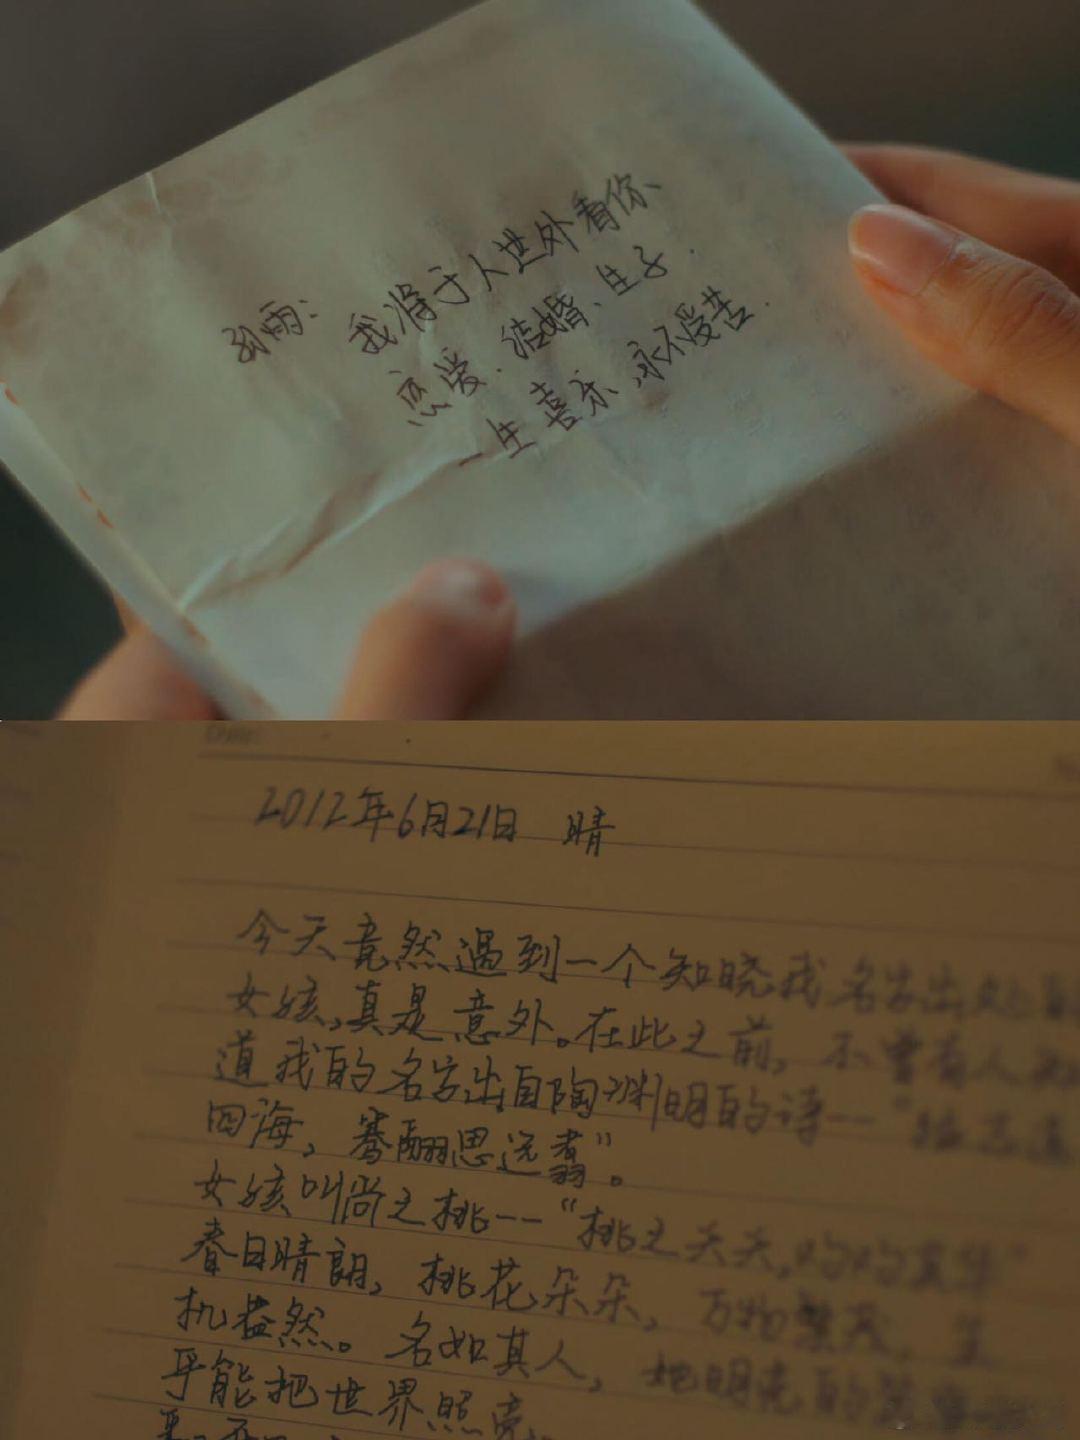 孙雨：
我将于人世外看你、
恋爱、结婚、生子、
一生喜乐，永不受苦.
2012年6月21日 晴
今天竟然遇到一个知晓我名字出处
女孩，真是意外。在此之前，不曾有人
道我的名字出自陶渊明的诗--"猛志逸
四海，骞翮思远翥"。
女孩叫尚之桃--"桃之夭夭，灼灼其华"
春日晴朗，桃花朵朵，万物繁茂，生
机盎然。名如其人，她明亮的
乎能把世界照亮